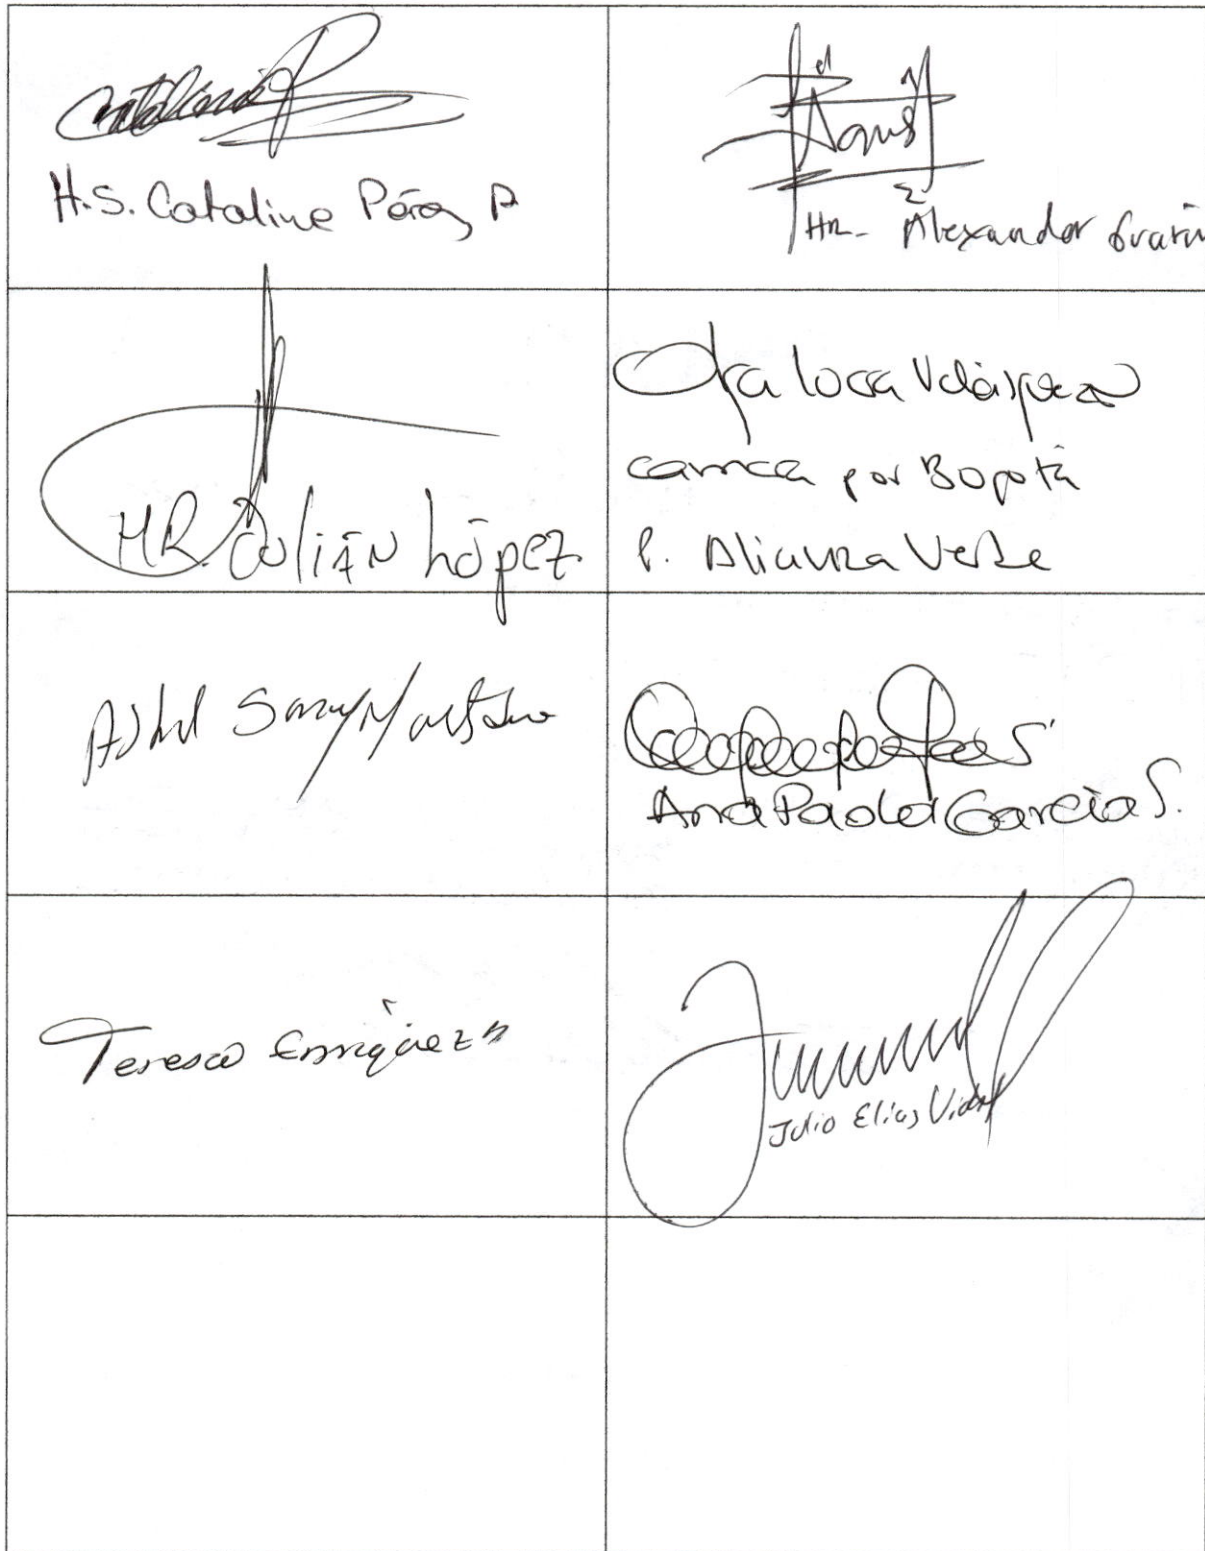 Catalina P
H.S. Catalina Pérez P
HR- Alexander Guarín
HR. Julián López
Olga Lucía Velásquez
camca por Bogotá
P. Alianza Verde
Ana Paola García S.
Teresa Enríquez
Julio Elías Vidal